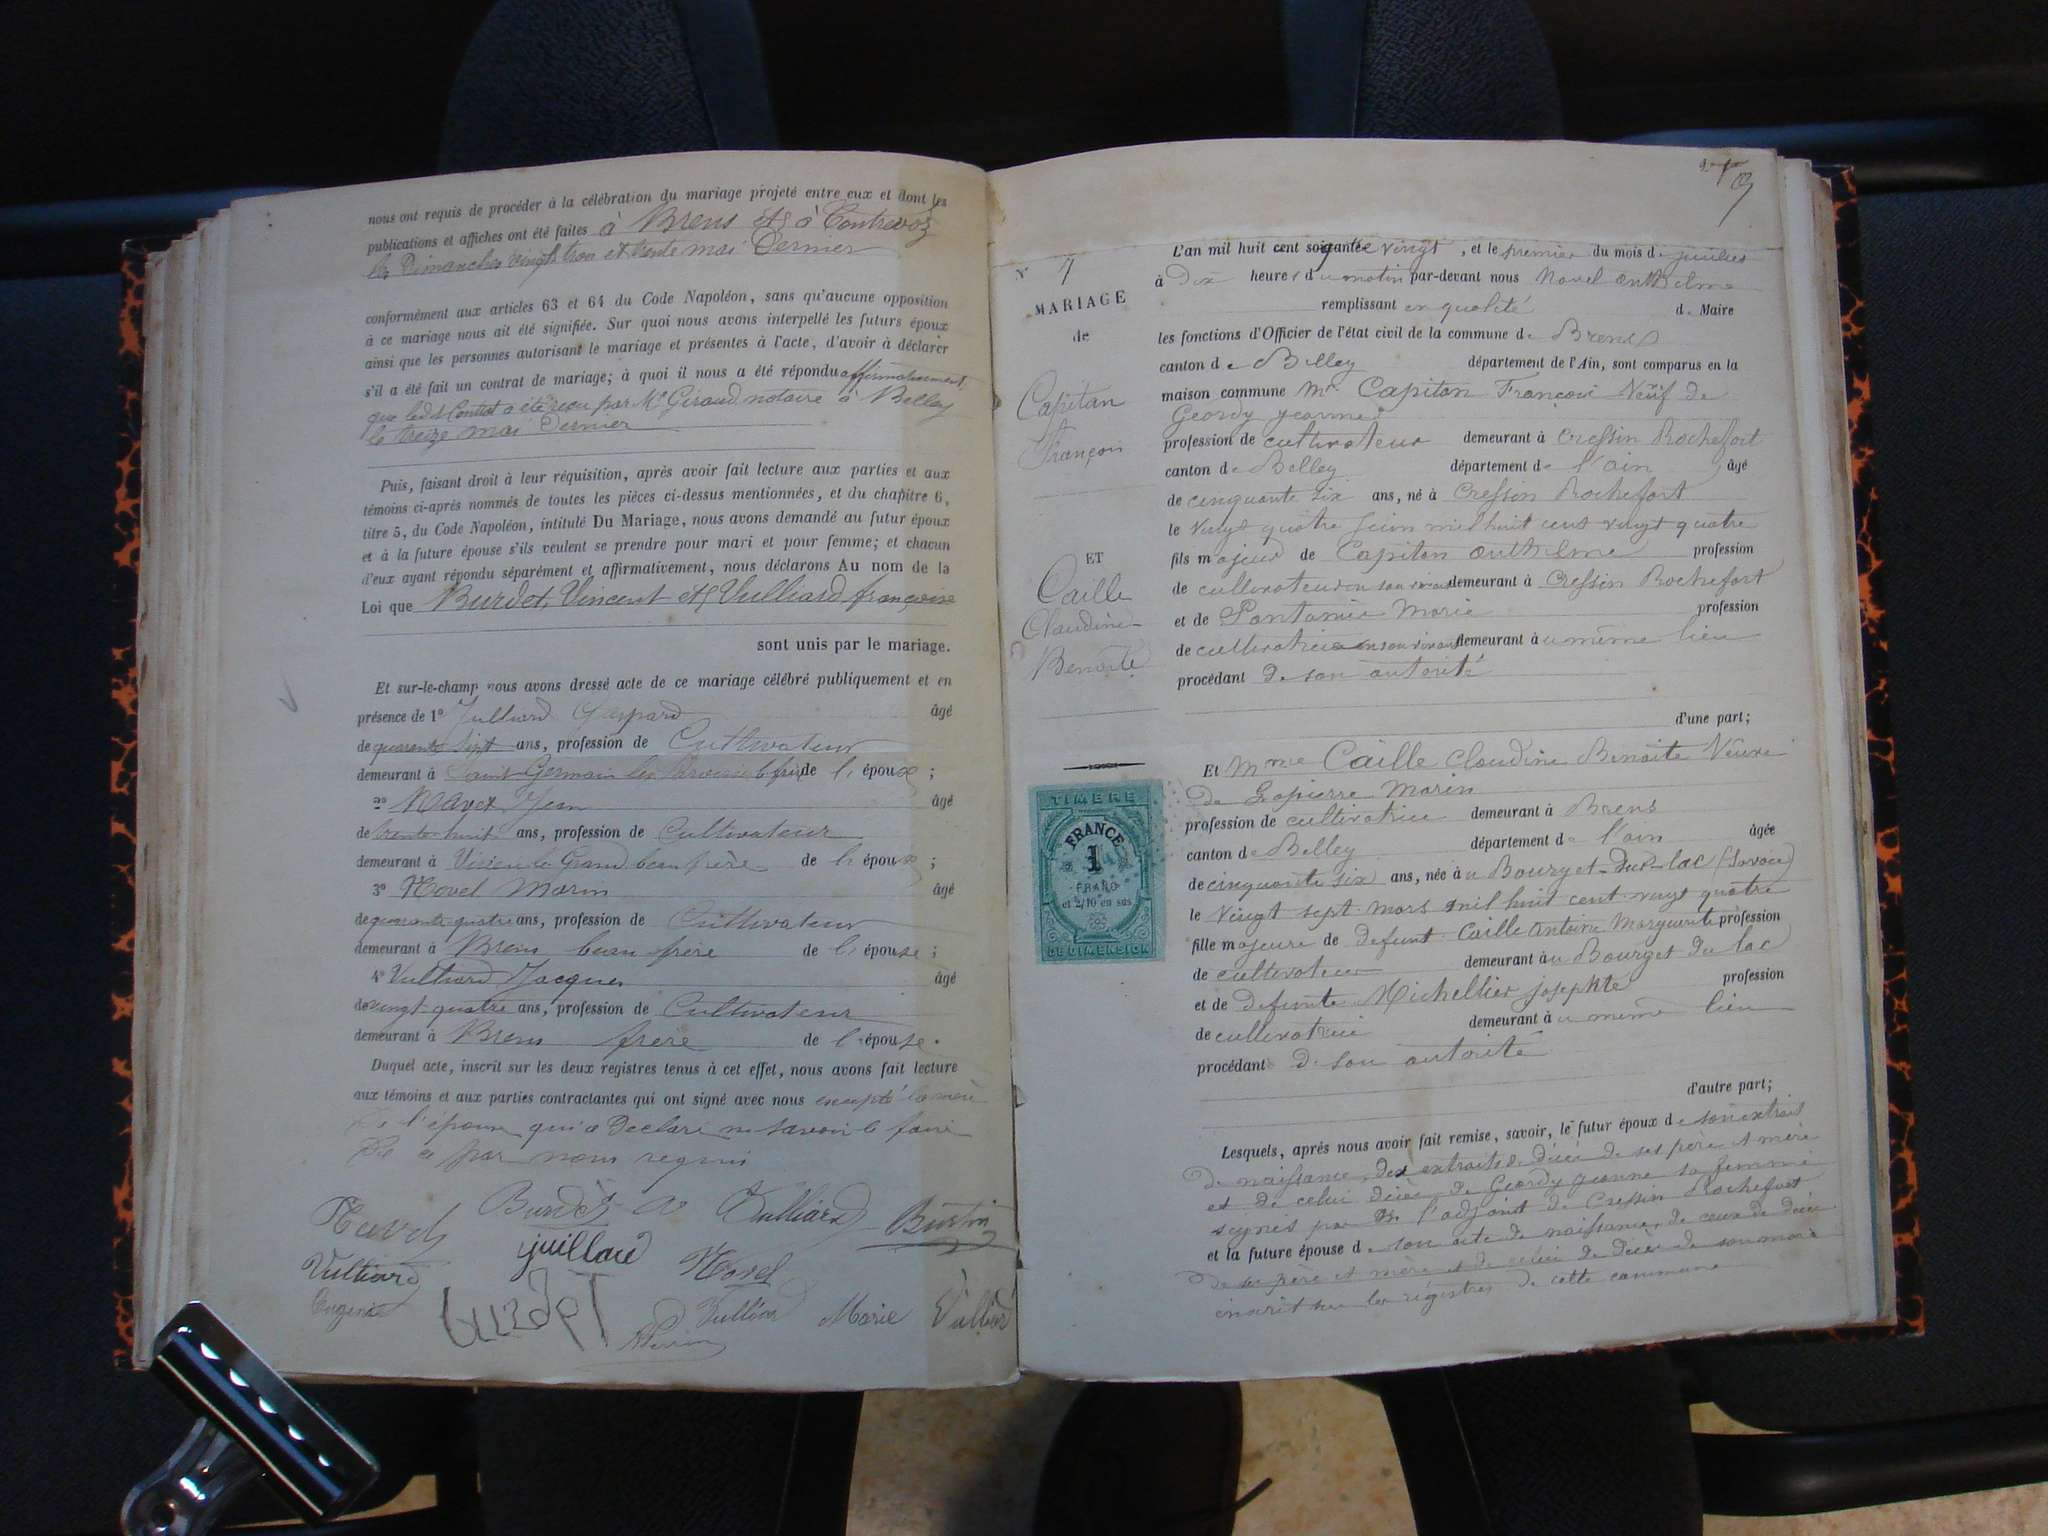 nous ont requis de procéder à la célébration du mariage projeté entre eux et dont les
publications et affiches ont été faites à Brens et à Contrevoz
les Dimanches vingt trois et trente mai Dernier
conformément aux articles 63 et 64 du Code Napoléon, sans qu'aucune opposition
à ce mariage nous ait été signifiée. Sur quoi nous avons interpellé les futurs époux
ainsi que les personnes autorisant le mariage et présentes à l'acte, d'avoir à déclarer
s'il a été fait un contrat de mariage; à quoi il nous a été répondu affirmativement,
que ledit Contrat a été reçu par Me Giraud notaire à Belley
le treize mai Dernier
Puis, faisant droit à leur réquisition, après avoir fait lecture aux parties et aux
témoins ci-après nommés de toutes les pièces ci-dessus mentionnées, et du chapitre 6,
titre 5, du Code Napoléon, intitulé Du Mariage, nous avons demandé au futur époux
et à la future épouse s'ils veulent se prendre pour mari et pour femme; et chacun
d'eux ayant répondu séparément et affirmativement, nous déclarons Au nom de la
Loi que Burdet, Vincent et Vulliard françoise
sont unis par le mariage.
Et sur-le-champ nous avons dressé acte de ce mariage célébré publiquement et en
présence de 1° Julliard Gaspard âgé
de quarante sept ans, profession de Cultivateur
demeurant à Saint Germain les Paroisses de l'époux;
2° Mavet Jean âgé
de trente huit ans, profession de Cultivateur
demeurant à Virieu le Grand beau frère de l'époux;
3° Novel Marin âgé
de quarante quatre ans, profession de Cultivateur
demeurant à Brens beau frère de l'épouse;
4° Vulliard Jacques âgé
de vingt-quatre ans, profession de Cultivateur
demeurant à Brens frère de l'épouse.
Duquel acte, inscrit sur les deux registres tenus à cet effet, nous avons fait lecture
aux témoins et aux parties contractantes qui ont signé avec nous excepté la mère
De l'époux qui a Déclaré ne savoir le faire
De ce par nous requis
Novel Burdet V Vulliard Burtin
Vulliard juillard Novel
Eugénie Burdet Vulliard Marie Vulliard
Perrin
N° 7
MARIAGE
de
Capitan
François
ET
Caille
Claudine
Benoîte
TIMBRE
FRANCE
1
FRANC
et 2/10 en sus
DE DIMENSION
L'an mil huit cent soixante vingt, et le premier du mois de juillet
à Dix heures du matin par-devant nous Novel anthelme
remplissant en qualité de Maire
les fonctions d'Officier de l'état civil de la commune de Brens
canton de Belley département de l'Ain, sont comparus en la
maison commune Mr Capitan François Veuf de
Geordy jeanne
profession de cultivateur demeurant à Cressin Rochefort
canton de Belley département de l'ain âgé
de cinquante six ans, né à Cressin Rochefort
le vingt quatre juin mil huit cent vingt quatre
fils majeur de Capitan anthelme profession
de cultivateur en son vivant demeurant à Cressin Rochefort
et de Pantanier Marie profession
de cultivatrice en son vivant demeurant au même lieu
procédant de son autorité
d'une part;
Et Mme Caille Claudine Benoîte Veuve
De Lapierre Marin
profession de cultivatrice demeurant à Brens
canton de Belley département de l'ain âgée
de cinquante six ans, née au Bourget-Du-lac (Savoie)
le vingt sept mars mil huit cent vingt quatre
fille majeure de defunt Caille Antoine Marguerite profession
de cultivateur demeurant au Bourget du lac
et de defunte Michellier josephte profession
de cultivatrice demeurant au même lieu
procédant de son autorité
d'autre part;
Lesquels, après nous avoir fait remise, savoir, le futur époux de son extrait
De naissance, des extraits de décès de ses père et mère
et de celui décès de Geordy jeanne sa femme
signés par l'adjoint de Cressin Rochefort
et la future épouse de son acte de naissance, de ceux de décès
De ses père et mère et de celui de décès de son mari
inscrit sur les régistres de cette commune